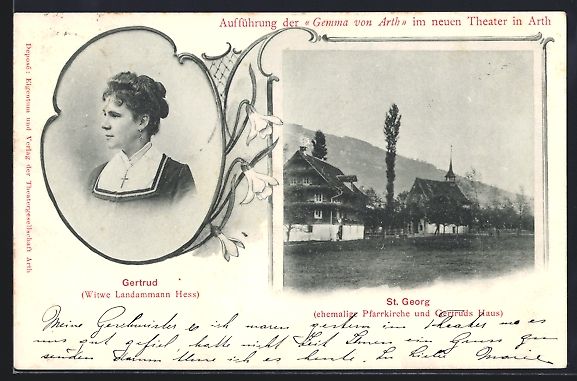 Aufführung der «Gemma von Arth» im neuen Theater in Arth
Deposé: Eigentum und Verlag der Theatergesellschaft Arth
Gertrud
(Witwe Landammann Hess)
St. Georg
(ehemalige Pfarrkirche und Gertruds Haus)
Meine Geschwister & ich waren gestern im Theater wo es
uns gut gefiel hatte nicht Zeit Ihnen ein Gruss zu
senden darum thue ich es heute. In Liebe Marie